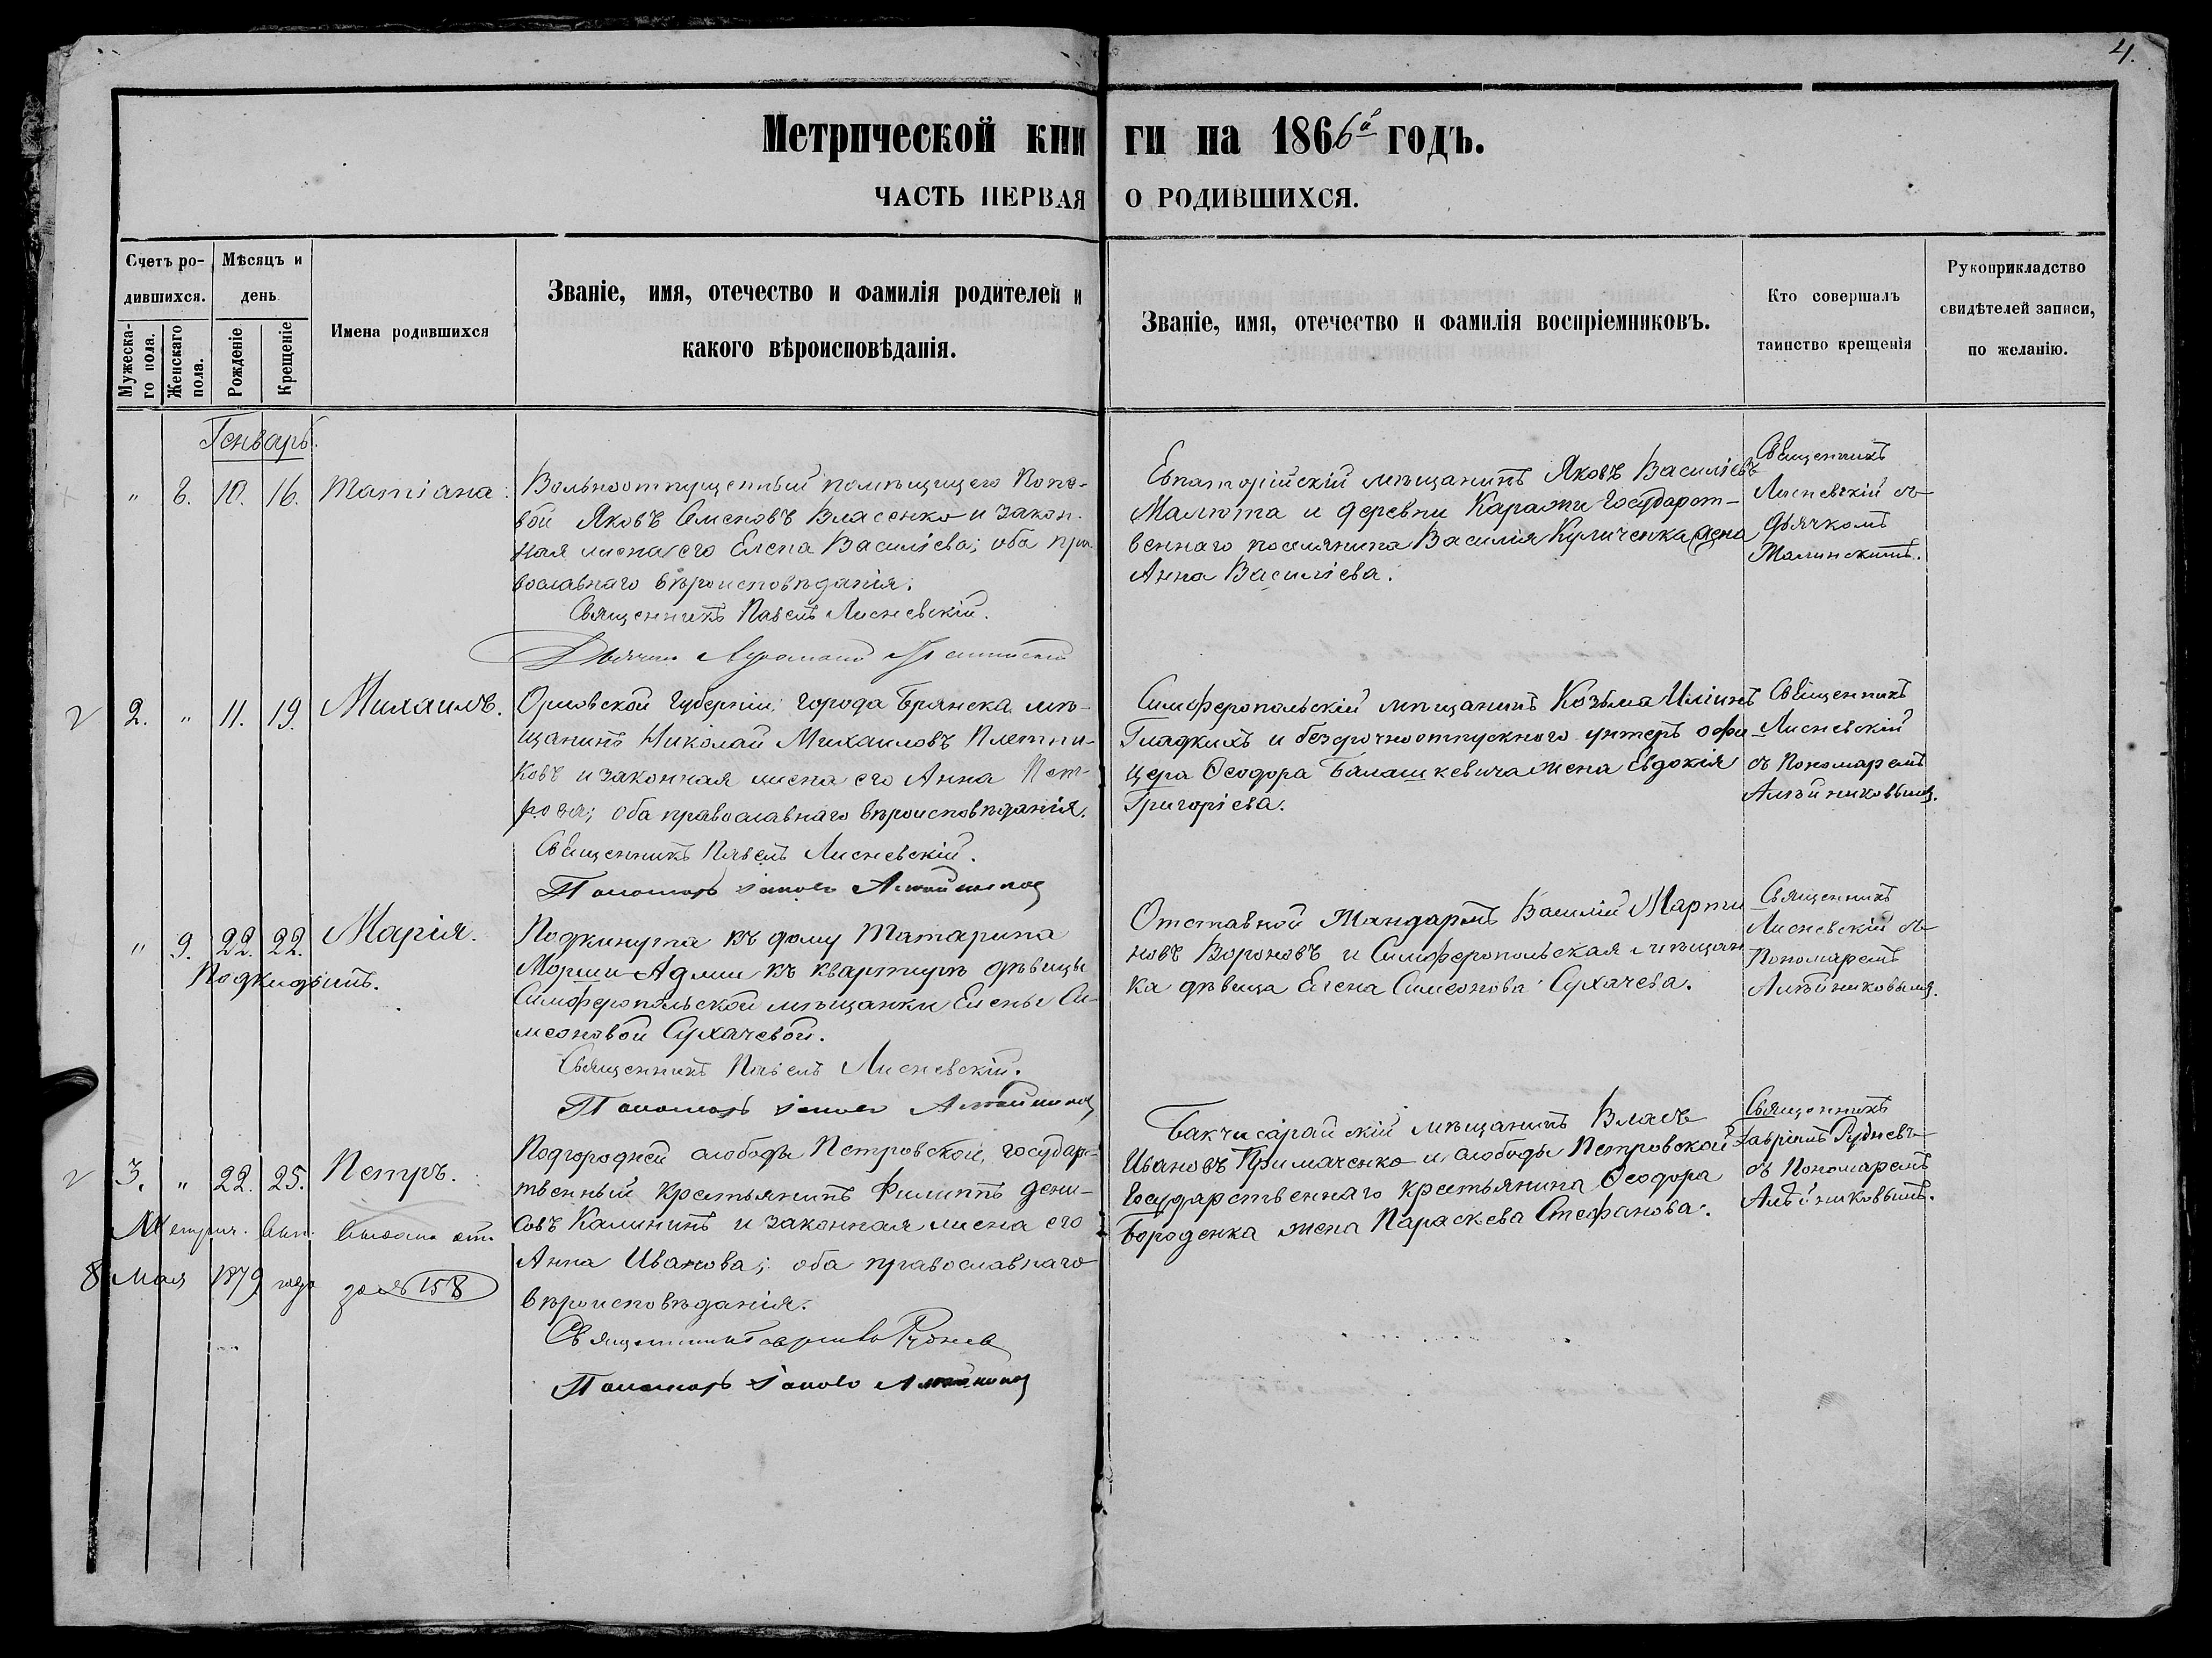 4.
Метрической книги на 1866й годъ.
ЧАСТЬ ПЕРВАЯ О РОДИВШИХСЯ.
Счетъ родившихся.
Мужескаго пола.
Женскаго пола.
Мѣсяцъ и день
Рожденіе
Крещеніе
Имена родившихся
Званіе, имя, отечество и фамилія родителей и
какого вѣроисповѣданія.
Званіе, имя, отечество и фамилія воспріемниковъ.
Кто совершалъ
таинство крещенія
Рукоприкладство
свидѣтелей записи,
по желанію.
Генварь.
" 8. 10. 16. Татіана.
Вольноотпущенный помѣщицею Попо-
вой Яковъ Семеновъ Власенко и закон-
ная жена его Елена Василіева; оба пра-
вославнаго вѣроисповѣданія.
Священникъ Павелъ Лисневскій.
Дьячекъ
Евпаторійскій мѣщанинъ Яковъ Василіевъ
Малюта и деревни Каражи Государст-
веннаго поселянина Василія Куличенка жена
Анна Василіева.
Священникъ
Лисневскій съ
Дьячкомъ
2. " 11. 19. Михаилъ.
Орловской Губерніи, города Брянска мѣ-
щанинъ Николай Михаиловъ Плетни-
ковъ и законная жена его Анна Пет-
рова; оба православнаго вѣроисповѣданія.
Священникъ Павелъ Лисневскій.
Пономарь Іаковъ Алейников
Симферопольскій мѣщанинъ Козьма Иліинъ
Гладкихъ и безсрочноотпускного унтеръ офи-
цера Ѳеодора Балашкевича жена Евдокія
Григоріева.
Священникъ
Лисневскій
съ Пономаремъ
Алейниковымъ.
" 9. 22. 22. Марія.
Подкидышъ.
Подкинута къ дому Татарина
къ квартирѣ дѣвицы
Симферопольской мѣщанки Елены Си-
меоновой Сухачевой.
Священникъ Павелъ Лисневскій.
Пономарь Іаковъ Алейников
Отставной Жандармъ Василій Марти-
новъ Вороновъ и Симферопольская мѣщан-
ка дѣвица Елена Симеонова Сухачева.
Священникъ
Лисневскій съ
Пономаремъ
Алейниковымъ.
3. " 22. 25. Петръ.
Метрич. вып. выдана
8 Мая 1879 года за № 158
Подгородней слободы Петровской, государ-
ственный крестьянинъ Филиппъ Дени-
совъ Калининъ и законная жена его
Анна Иванова; оба православнаго
вѣроисповѣданія.
Священникъ Гавріилъ Руднев
Пономарь Іаковъ Алейников
Бакчисарайскій мѣщанинъ Власъ
Ивановъ Примаченко и слободы Петровской
Государственнаго крестьянина Ѳеодора
Бороденка жена Параскева Стефанова.
Священникъ
Гавріилъ Рудневъ
съ Пономаремъ
Алейниковымъ.